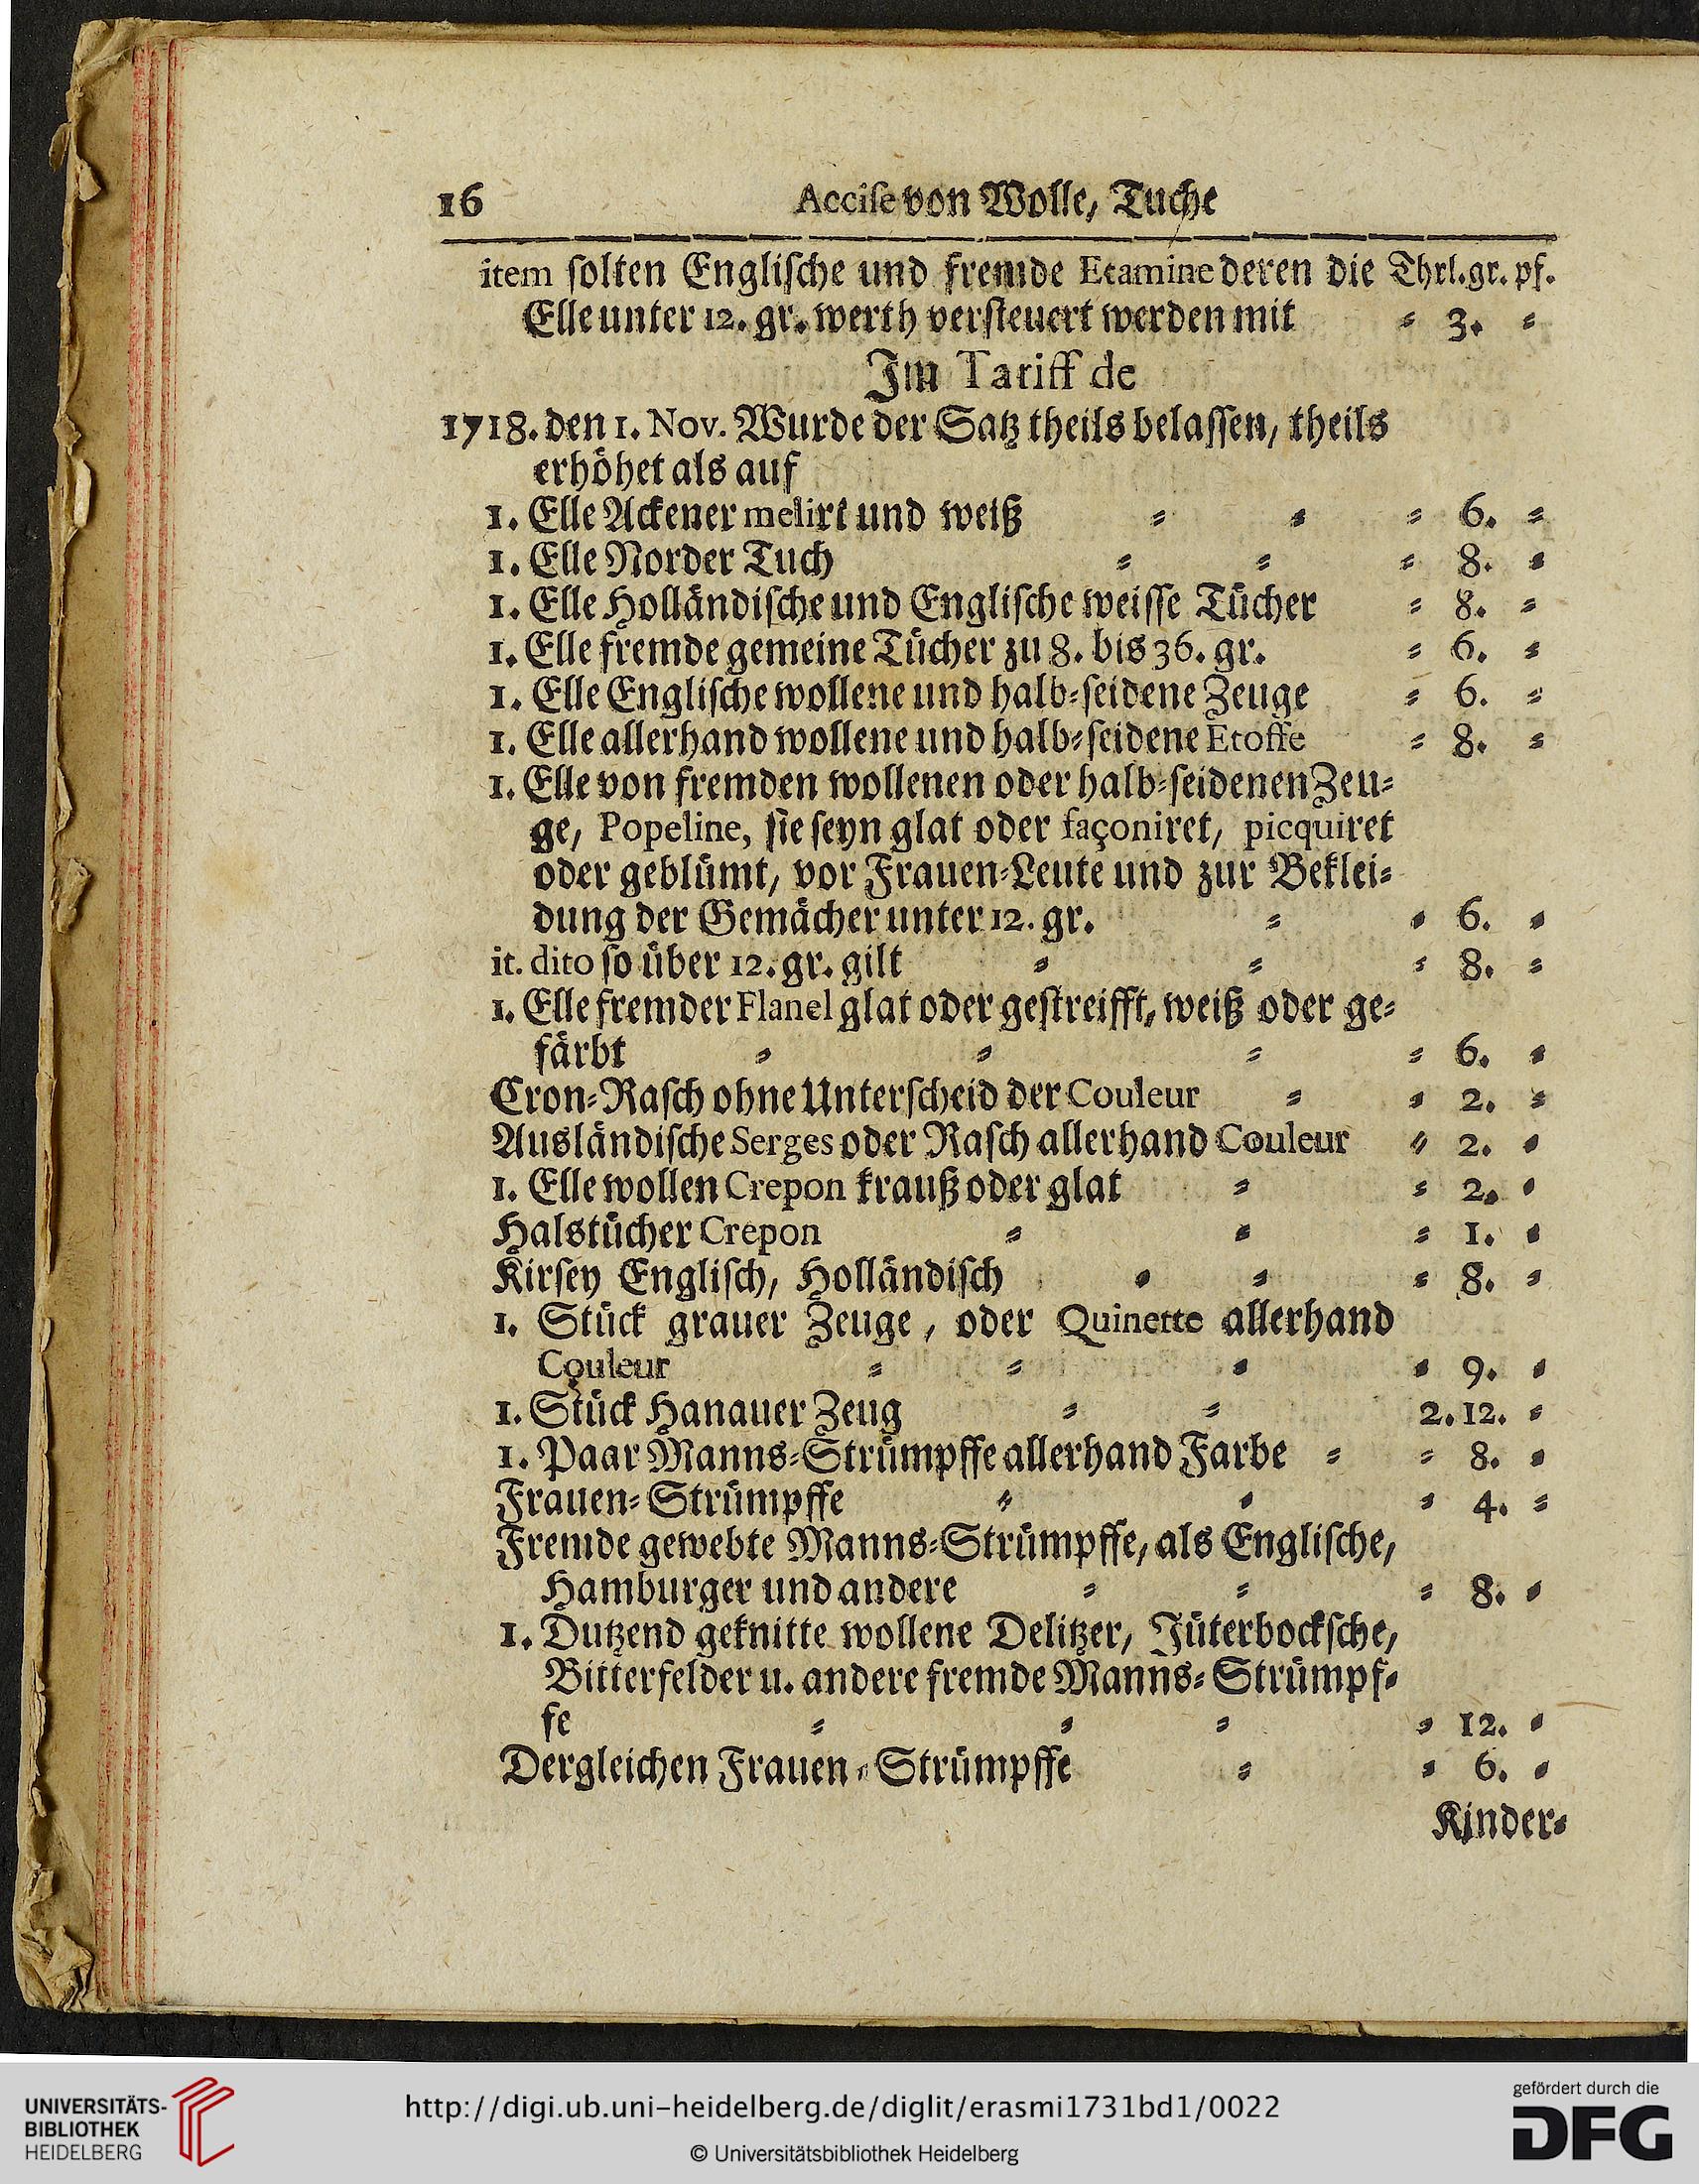 16 Accise von Wolle, Tuche
item solten Englische und fremde Etamine deren die Thrl. gr. pf.
Elle unter 12. gr. werth versteuert werden mit = 3. =
Im Tariff de
1718. den 1. Nov. Wurde der Satz theils belassen, theils
erhöhet als auf
1. Elle Ackener melirt und weiß = = = 6. =
1. Elle Norder Tuch = = = 8. =
1. Elle Holländische und Englische weisse Tücher = 8. =
1. Elle fremde gemeine Tücher zu 8. bis 36. gr. = 6. =
1. Elle Englische wollene und halb=seidene Zeuge = 6. =
1. Elle allerhand wollene und halb=seidene Etoffe = 8. =
1. Elle von fremden wollenen oder halb=seidenen Zeu=
ge, Popeline, sie seyn glat oder façoniret, picquiret
oder geblümt, vor Frauen=Leute und zur Beklei=
dung der Gemächer unter 12. gr. = = 6. =
it. dito so über 12. gr. gilt = = = 8. =
1. Elle fremder Flanel glat oder gestreifft, weiß oder ge=
färbt = = = = 6. =
Cron=Rasch ohne Unterscheid der Couleur = = 2. =
Ausländische Serges oder Rasch allerhand Couleur = 2. =
1. Elle wollen Crepon krauß oder glat = = 2. =
Halstücher Crepon = = = 1. =
Kirsey Englisch, Holländisch = = = 8. =
1. Stück grauer Zeuge, oder Quinette allerhand
Couleur = = = = 9. =
1. Stück Hanauer Zeug = = 2. 12. =
1. Paar Manns=Strümpffe allerhand Farbe = = 8. =
Frauen=Strümpffe = = = 4. =
Fremde gewebte Manns=Strümpffe, als Englische,
Hamburger und andere = = = 8. =
1. Dutzend geknitte wollene Delitzer, Jüterbocksche,
Bitterfelder u. andere fremde Manns=Strümpf=
fe = = = = 12. =
Dergleichen Frauen=Strümpffe = = 6. =
Kinder=
UNIVERSITÄTS-
BIBLIOTHEK
HEIDELBERG
http://digi.ub.uni-heidelberg.de/diglit/erasmi1731bd1/0022
© Universitätsbibliothek Heidelberg
gefördert durch die
DFG